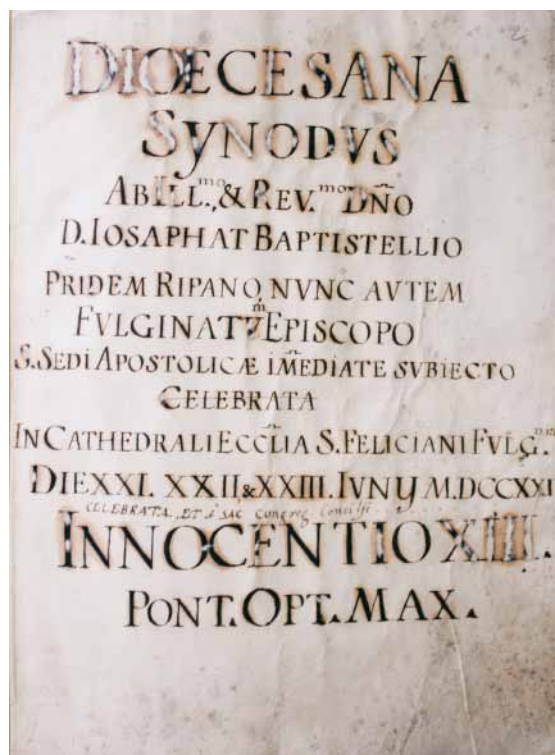 DIOECESANA
SYNODVS
AB ILL.mo, & REV.mo DÑO
D. IOSAPHAT BAPTISTELLIO
PRIDEM RIPANO, NVNC AVTEM
FVLGINAT EPISCOPO
S. SEDI APOSTOLICÆ IM̃EDIATE SVBIECTO
CELEBRATA
IN CATHEDRALI ECCL̃IA S. FELICIANI FVLG.
DIE XXI. XXII & XXIII. IVNY M.DCCXXI
CELEBRATA, ET SAC Congreg.
INNOCENTIO XIII.
PONT. OPT. MAX.